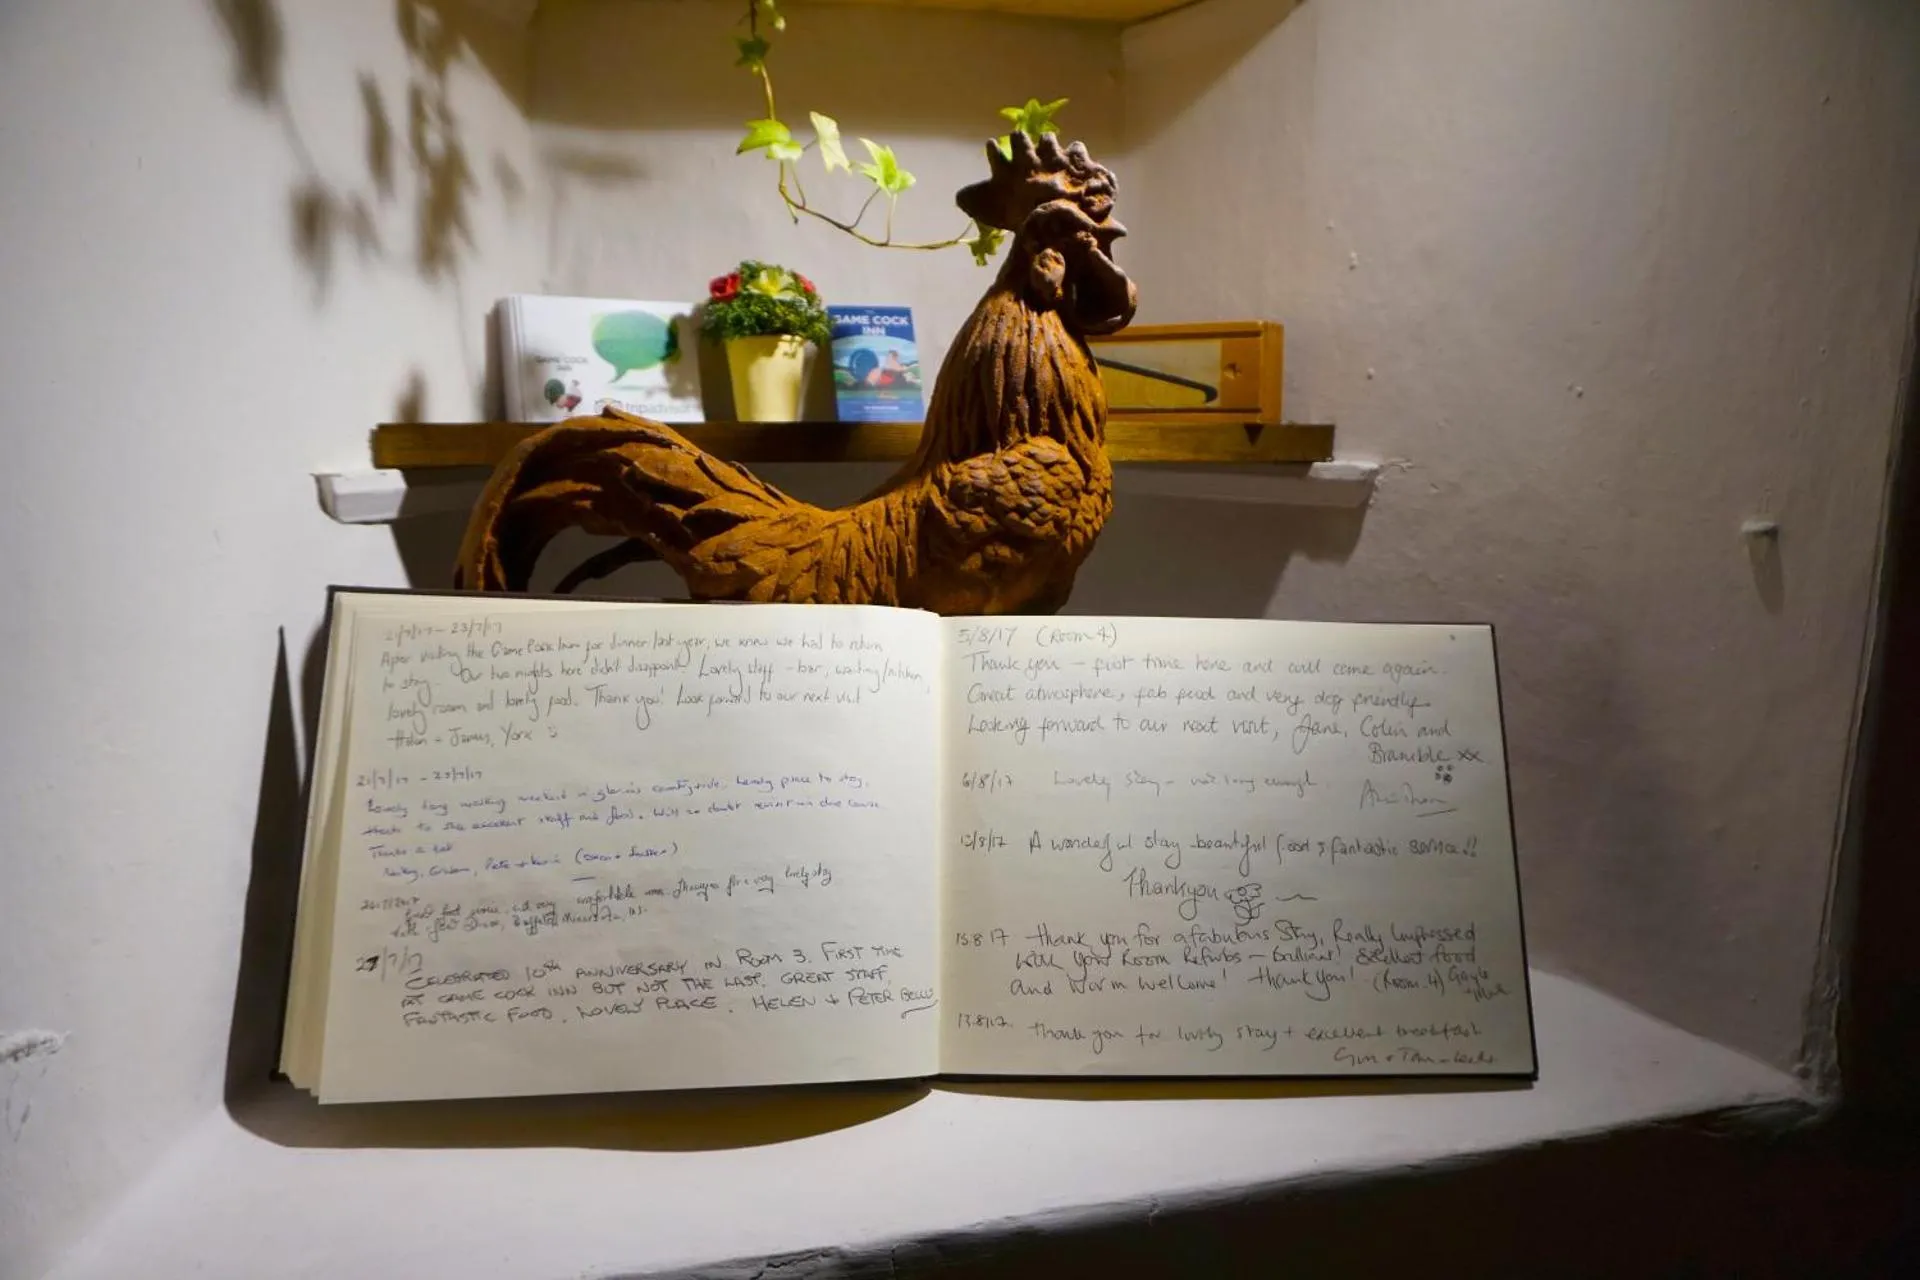 GAME COCK
INN
tripadvisor
GAME COCK
INN
21/7/17 – 23/7/17
After visiting the Game Cock Inn for dinner last year, we knew we had to return
to stay. Our two nights here didn't disappoint! Lovely staff – bar, waiting/kitchen,
lovely room and lovely food. Thank you! Look forward to our next visit
Helen + James, York
21/7/17 – 23/7/17
Lovely long walking weekend in glorious countryside, lovely place to stay,
thanks to the excellent staff and food. Will no doubt revisit in due course
Thanks a lot
comfortable room. Thankyou for a very lovely stay
27/7/17
CELEBRATED 10th ANNIVERSARY IN ROOM 3. FIRST TIME
AT GAME COCK INN BUT NOT THE LAST. GREAT STAFF,
FANTASTIC FOOD, LOVELY PLACE. HELEN + PETER
5/8/17 (Room 4)
Thank you – first time here and will come again.
Great atmosphere, fab food and very dog friendly.
Looking forward to our next visit, Jane, Colin and
Bramble xx
6/8/17 Lovely stay – not long enough
A wonderful stay beautiful food & fantastic service!!
Thankyou
Thank you for a fabulous Stay, Really Impressed
with your Room Refurbs – Brilliant! Excellent food
and Warm Welcome! Thankyou! (Room 4)
13.8.17. Thank you for lovely stay + excellent breakfast